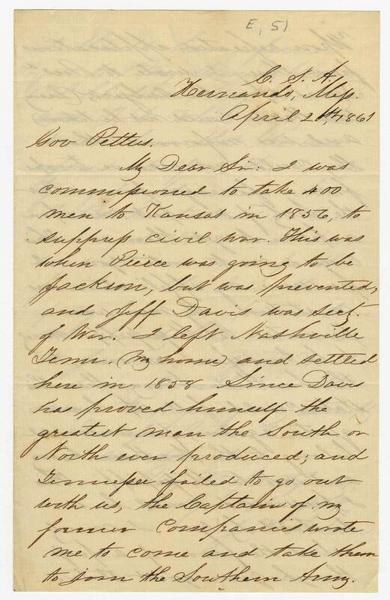 E, 51
C. S. A.
Hernando, Miss.
April 2th, 1861
Gov Pettus.
My Dear Sir: I was
commissioned to take 400
men to Kansas in 1856, to
suppress civil war. This was
when Pierce was going to be
Jackson, but was prevented,
and Jeff Davis was Secy.
of War. I left Nashville
Tenn. (my home) and settled
here in 1858 Since Davis
has proved himself the
greatest man the South or
North ever produced; and
Tennessee failed to go out
with us, the Captain of my
former Companies wrote
me to come and take them
to join the Southern Army.